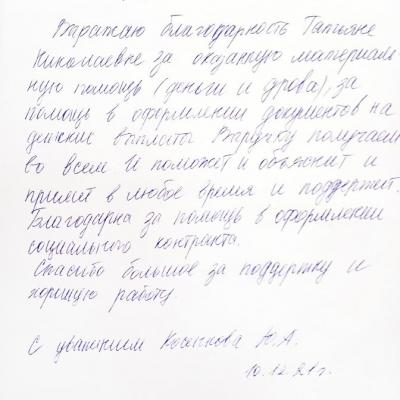 Выражаю благодарность Татьяне
Николаевне за оказанную материаль-
ную помощь (деньги и дрова), за
помощь в оформлении документов на
детские выплаты Выручку получаем
во всем. И поможет и объяснит и
примет в любое время и поддержит.
Благодарна за помощь в оформлении
социального контракта.
Спасибо большое за поддержку и
хорошую работу.
С уважением Ю.А.
10.12.21г.